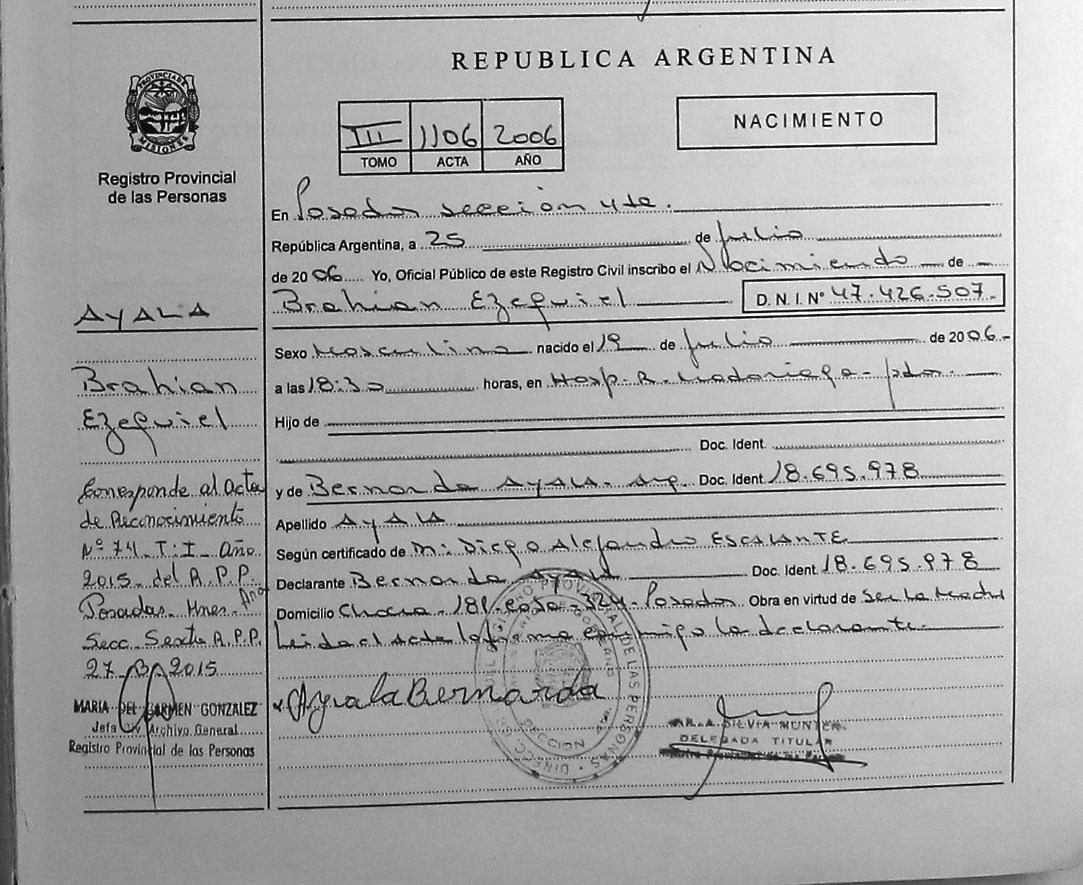 REPUBLICA ARGENTINA
PROVINCIA DE MISIONES
Registro Provincial
de las Personas
III 1106 2006
TOMO ACTA AÑO
NACIMIENTO
En Posadas sección 4ta.
República Argentina, a 25 de Julio
de 2006 Yo, Oficial Público de este Registro Civil inscribo el Nacimiento de
Brahian Ezequiel D.N.I. Nº 47.426.507.
Sexo Masculino nacido el 19 de Julio de 2006
a las 18:30 horas, en Hosp. R. Madariaga - Pdas.
Hijo de
Doc. Ident.
y de Bernarda AYALA. Arg. Doc. Ident. 18.695.978
Apellido AYALA
Según certificado de M: Diego Alejandro ESCALANTE
Declarante Bernarda AYALA Doc. Ident. 18.695.978
Domicilio Chacra 181 casa 324 Posadas Obra en virtud de Ser la Madre
Leida el Acta la firma conmigo la declarante.
Ayala Bernarda
SILVIA MUNTER
DELEGADA TITULAR
AYALA
Brahian
Ezequiel
Corresponde al Acta
de Reconocimiento
Nº 74 T: I Año
2015 del R.P.P.
Posadas Mnes. Arg
Secc. Sexta R.P.P.
27 2015
MARIA DEL CARMEN GONZALEZ
Jefa Archivo General
Registro Provincial de las Personas